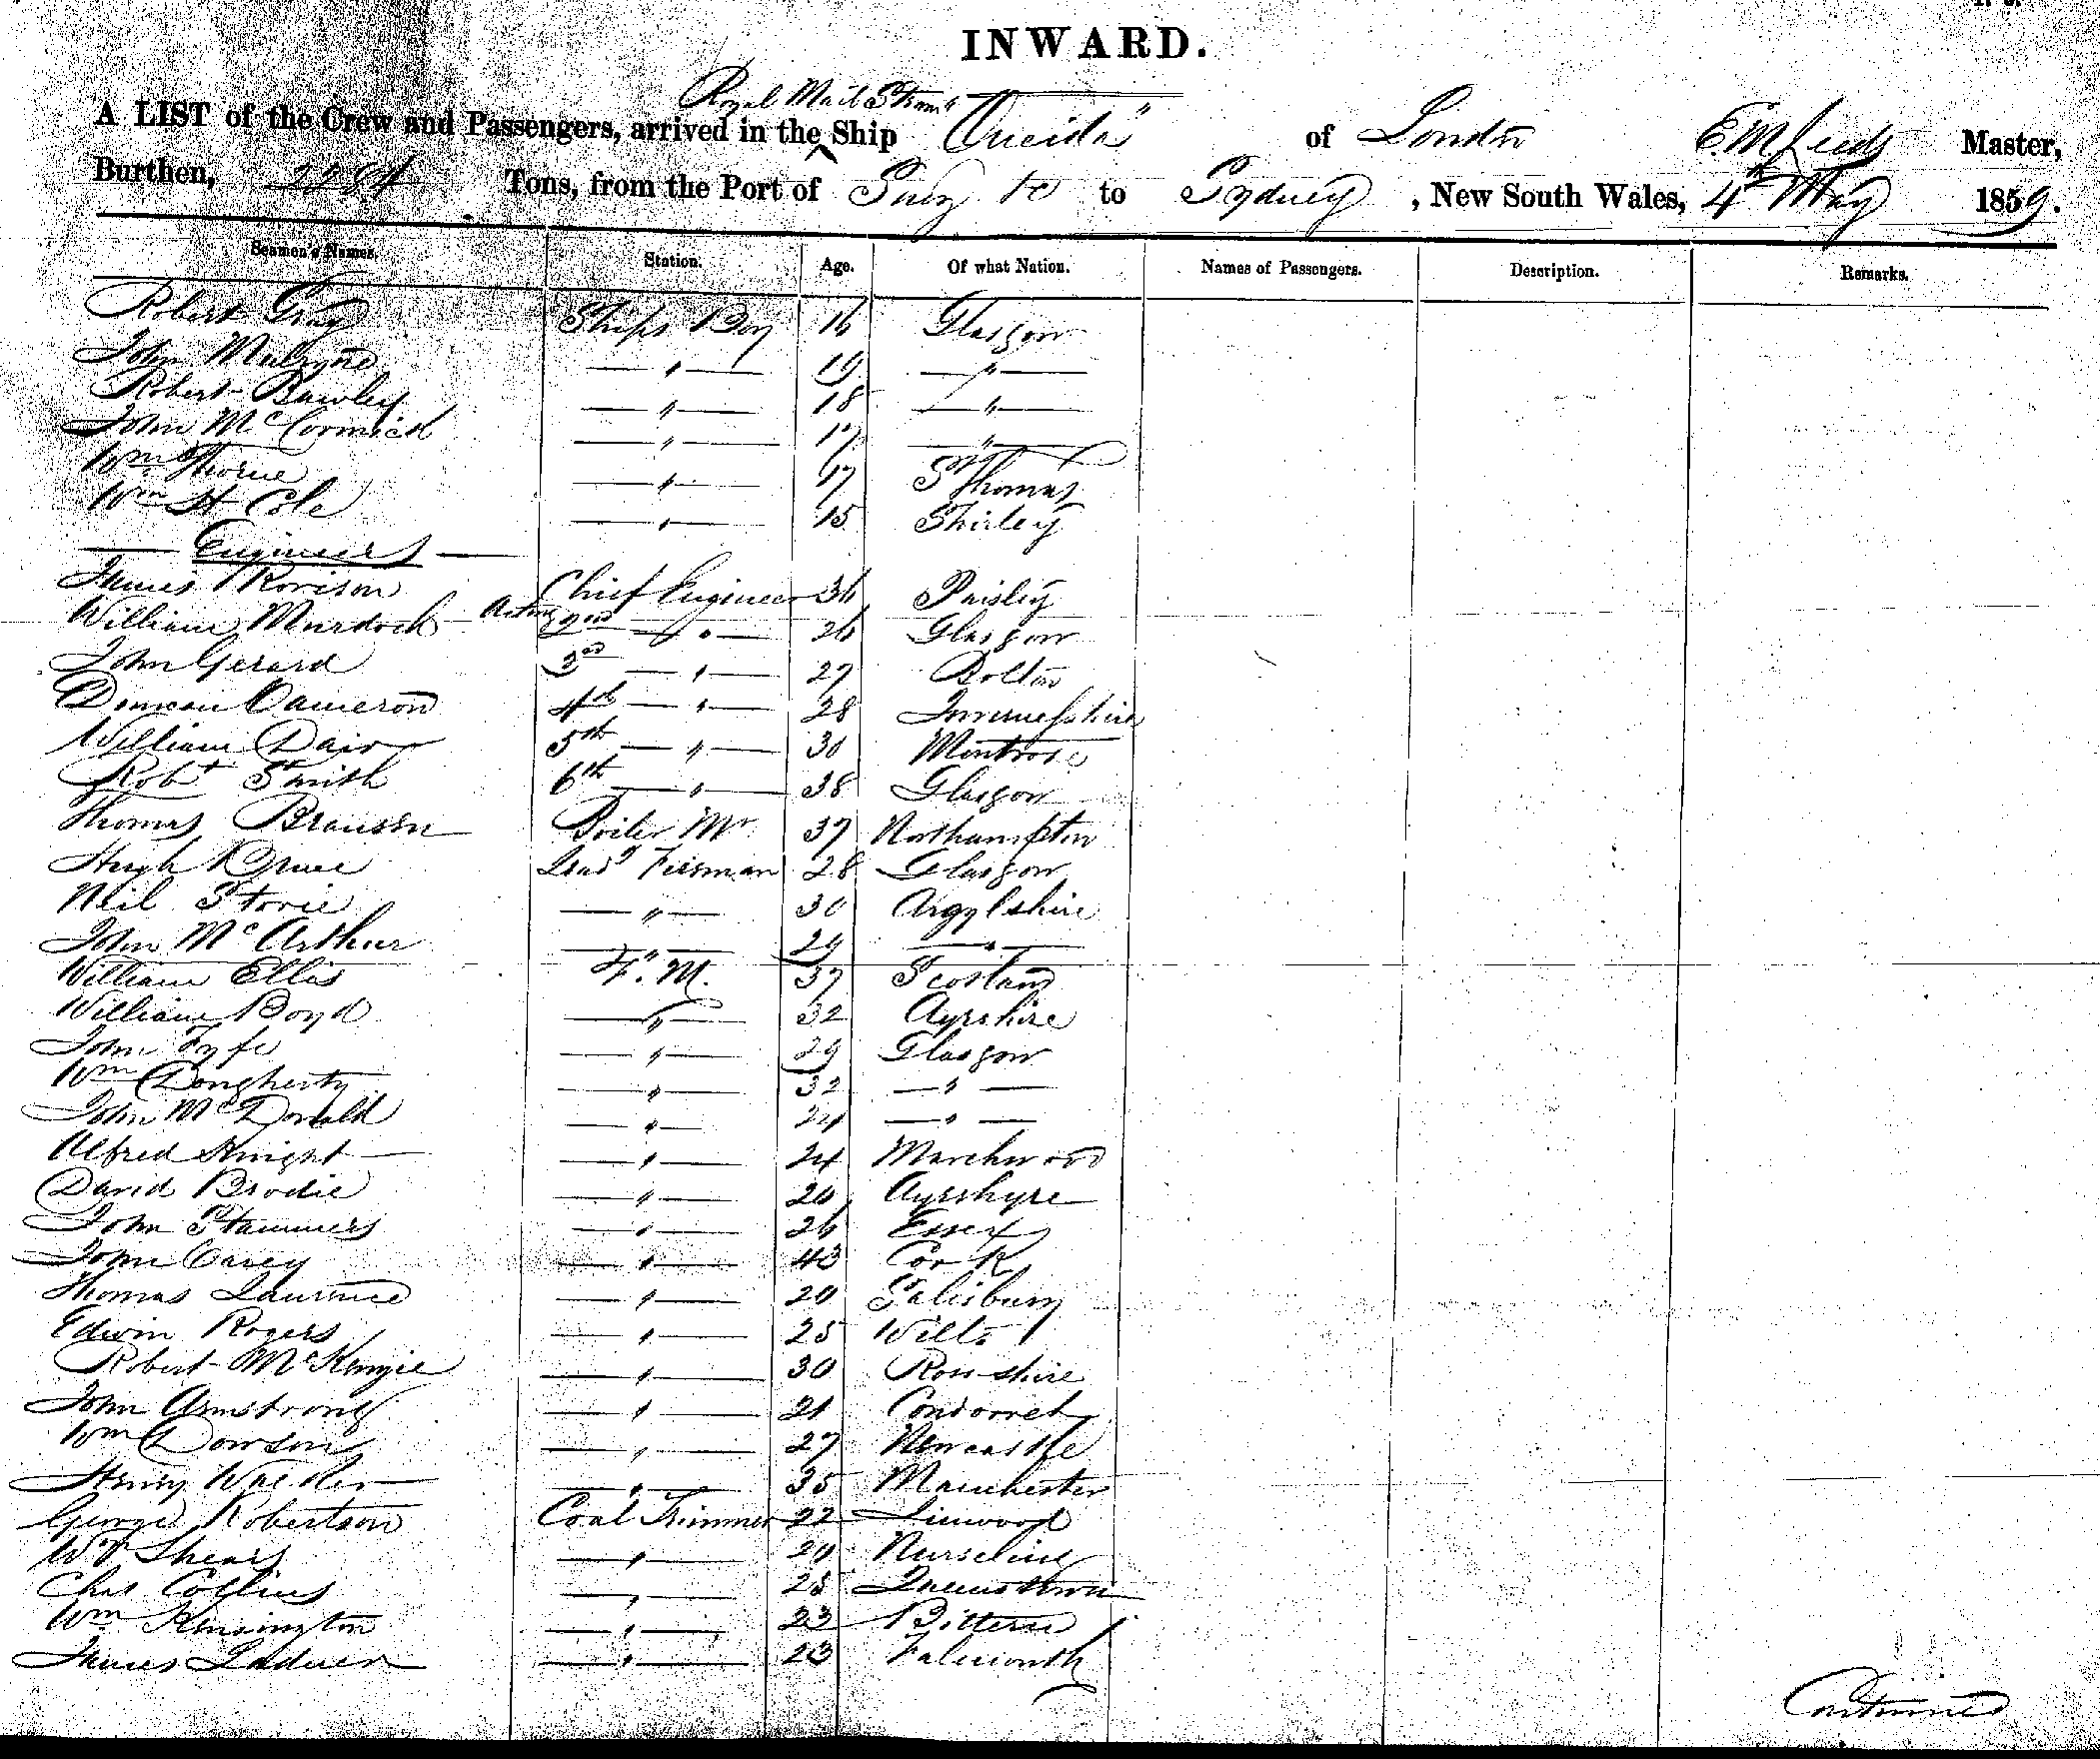 INWARD.
Royal Mail Steamr
A LIST of the Crew and Passengers, arrived in the Ship "Oneida" of London E. M. Leeds Master,
Burthen, 2284 Tons, from the Port of Suez to to Sydney, New South Wales, 4th May 1859.
Seamen's Names. Station. Age. Of what Nation. Names of Passengers. Description. Remarks.
Robert Gray Ships Boy 16 Glasgow
John — " — 19 — " —
Robert Bawley — " — 18 — " —
John McCormick — " — 17 — " —
Wm Thorne — " — 17 St Thomas
Wm H Cole — " — 15 Shirley
— Engineers —
James Rorison Chief Engineer 36 Paisley
William Murdoch Acting 2nd — " — 26 Glasgow
John Gerard 3rd — " — 27 Bolton
Duncan Cameron 4th — " — 28 Invernesshire
William Dair 5th — " — 30 Montrose
Robt Smith 6th — " — 38 Glasgow
Thomas Branson Boiler Mr 37 Northampton
Hugh Bruce Leadg Fireman 28 Glasgow
Neil Storie — " — 30 Argylshire
John McArthur — " — 29 — " —
William Ellis F. M. 37 Scotland
William Boyd — " — 32 Ayrshire
John Fyfe — " — 29 Glasgow
Wm Dougherty — " — 32 — " —
John McDonald — " — 24 — " —
Alfred Knight — " — 24 Marchwood
David Brodie — " — 26 Ayrshyre
John Stammers — " — 26 Essex
John Carey — " — 43 Cork
Thomas Laurence — " — 20 Salisbury
Edwin Rogers — " — 25 Wilts
Robert McKenzie — " — 30 Ross-shire
John Armstrong — " — 21 Condorret
Wm Dowson — " — 27 Newcastle
Henry — " — 35 Manchester
George Robertson Coal Trimmer 22 Linwood
Wm Shears — " — 20 Nurseling
Chas Collins — " — 25 Queenstown
Wm Kensington — " — 23 Bittern
James — " — 23 Falmouth
Continued